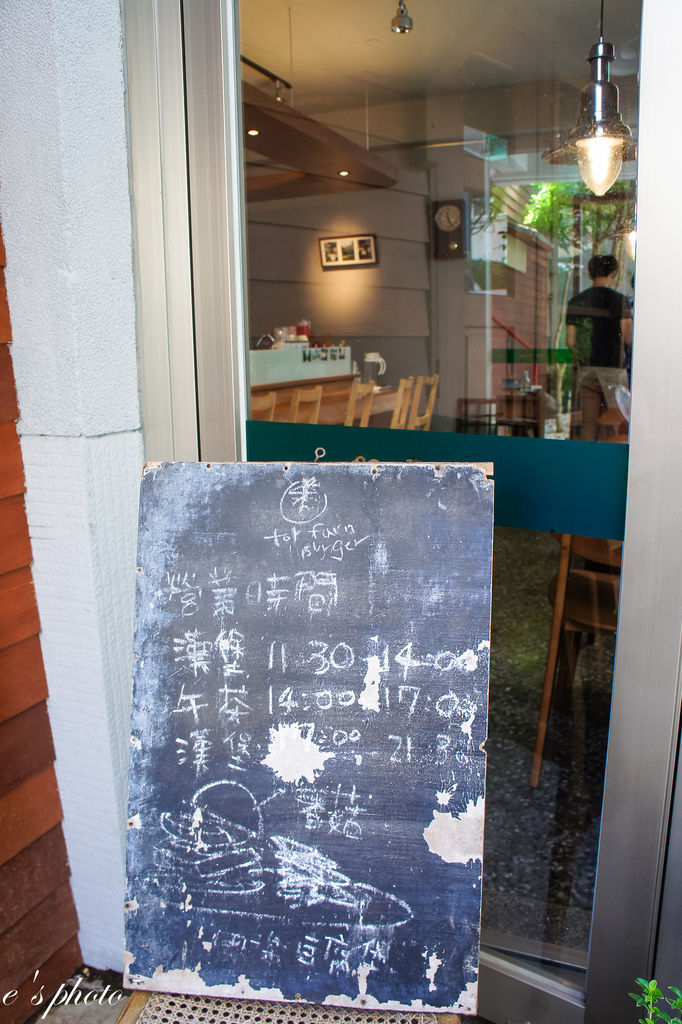 tot farn
Burger
營業時間
漢堡 11:30 - 14:00
午茶 14:00 - 17:00
漢堡 17:00 - 21:30
蘑菇
豆腐
e's photo